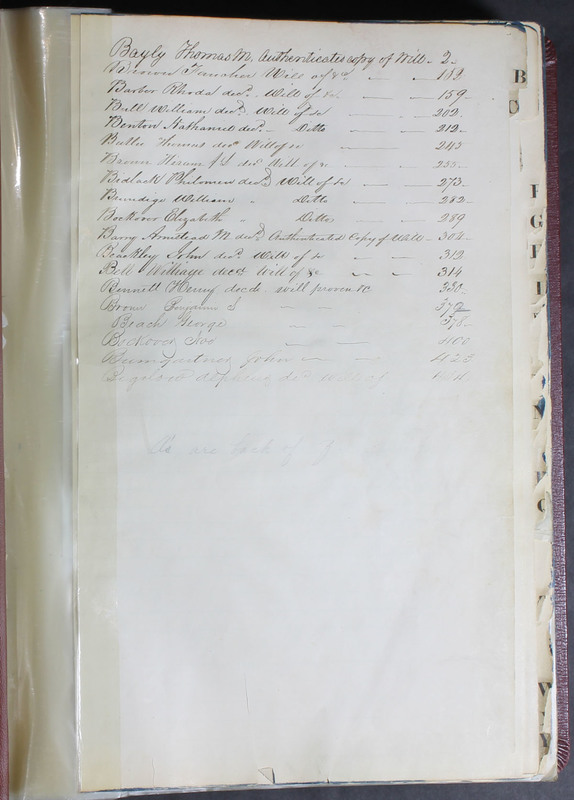 Bayly Thomas M, Authenticated copy of Will - 2 -
Brown Will of &c - - 112
Barber Rhoda decd. Will of &c. - - 159 -
Bull William decd. Will of &c - - 202.
Benton Nathaniel decd. - Ditto - - 212 -
Butler Thomas decd Will of &c - - 245
Brown Hiram decd Will of &c - - 255 -
Bedlack Philomen decd Will of &c - - 273 -
Bundige William " Ditto - - 282 -
Bockover Elizabeth " Ditto - - 289
Barry Armstead M. decd Authenticated Copy of Will - 304 -
Beackley John decd. Will of &c - - 312
Bell decd Will of &c - - 314
Bennett Henry decd - will proven &c 331 -
Brown Benjamin S - - 372
Beach George - - 378 -
- - 400
Bumgardner John - - 423
Bigelow decd Will of
B
C
F
G
H
I
N
O
W
Y